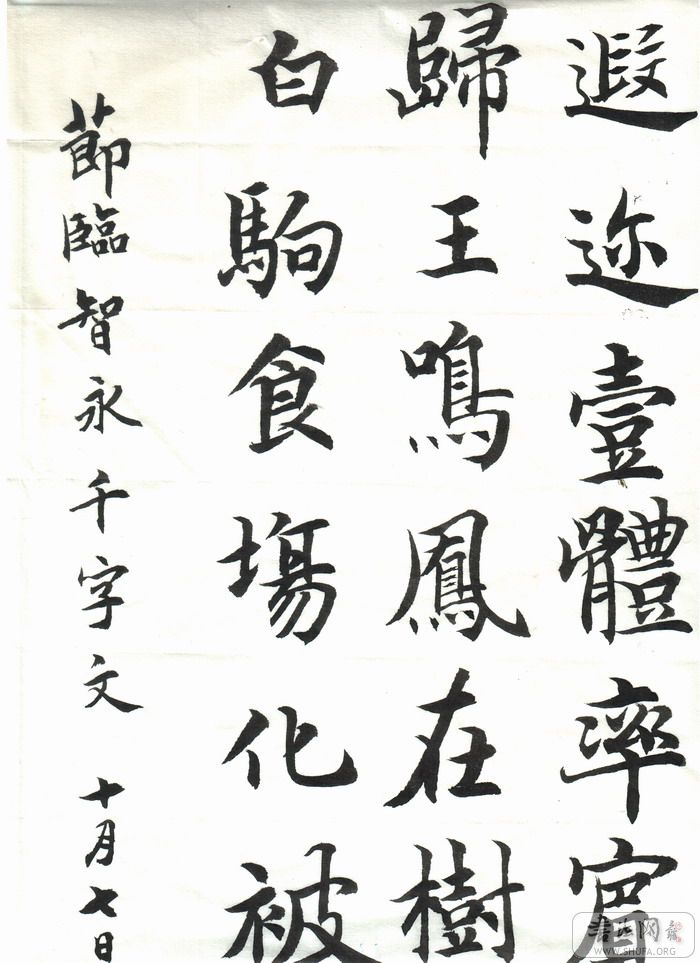 遐迩壹體率賓
歸王鳴鳳在樹
白駒食塲化被
莭臨智永千字文 十月七日
书法网
WWW.SHOFA.ORG